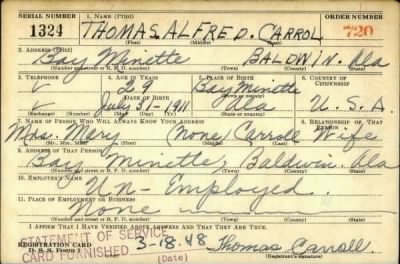 SERIAL NUMBER 1. NAME (Print) ORDER NUMBER
1324 THOMAS. ALFRED. CARROL 720
(First) (Middle) (Last)
2. ADDRESS (Print)
Bay Minette BALDWIN. Ala
(Number and street or R. F. D. number) (Town) (County) (State)
3. TELEPHONE 4. AGE IN YEARS 5. PLACE OF BIRTH 6. COUNTRY OF CITIZENSHIP
29 Bay Minette
DATE OF BIRTH
July 31-1911 Ala U.S.A
(Exchange) (Number) (Mo.) (Day) (Yr.) (State or country)
7. NAME OF PERSON WHO WILL ALWAYS KNOW YOUR ADDRESS 8. RELATIONSHIP OF THAT PERSON
Mrs. Mary (None) Carroll Wife
(Mr., Mrs., Miss) (First) (Middle) (Last)
9. ADDRESS OF THAT PERSON
Bay Minette, Baldwin. Ala
(Number and street or R. F. D. number) (Town) (County) (State)
10. EMPLOYER'S NAME
Un-Employed.
11. PLACE OF EMPLOYMENT OR BUSINESS
None
(Number and street or R. F. D. number) (Town) (County) (State)
I AFFIRM THAT I HAVE VERIFIED ABOVE ANSWERS AND THAT THEY ARE TRUE.
STATEMENT OF SERVICE
REGISTRATION CARD
D. S. S. Form 1
CARD FURNISHED 3-18-48 Thomas Carroll.
(Date)